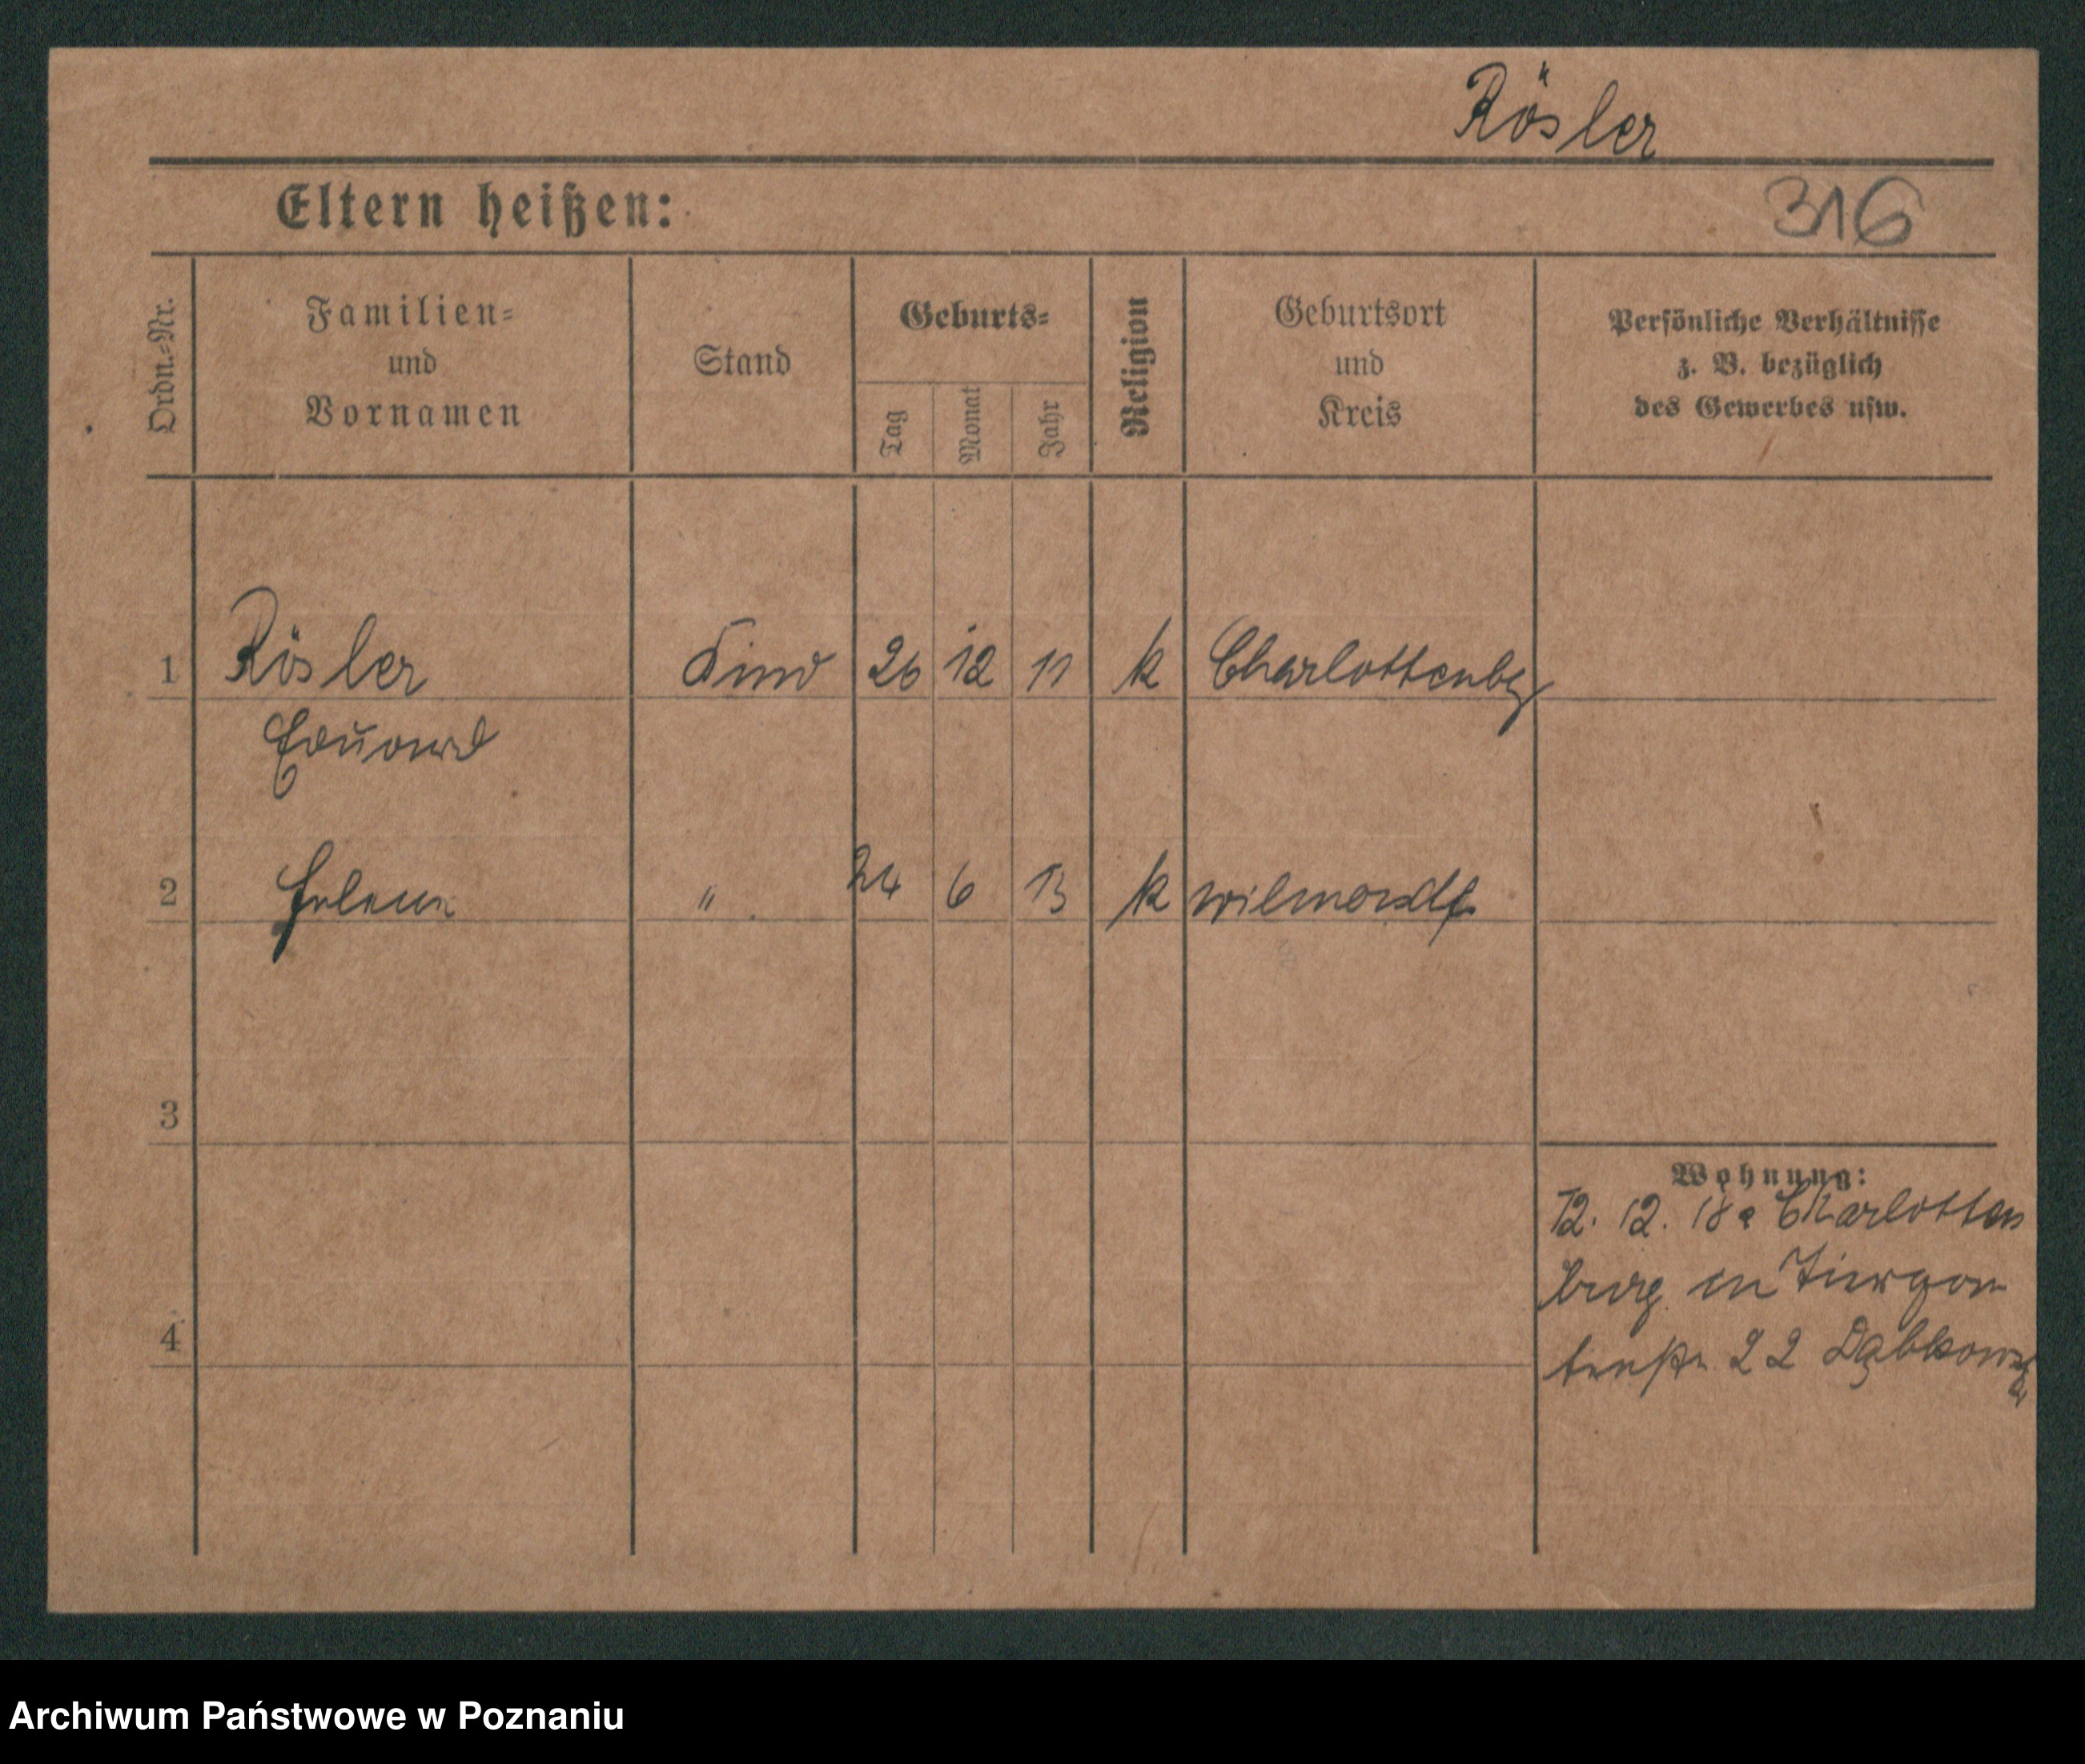 Rösler
Eltern heißen:
316
Ordn.=Nr.
Familien=
und
Vornamen
Stand
Geburts=
Tag
Monat
Jahr
Religion
Geburtsort
und
Kreis
Persönliche Verhältnisse
z. B. bezüglich
des Gewerbes usw.
1 Rösler Kind 26 12 11 k Charlottenbg
Eduard
2 Helene " 24 6 13 k Wilmersdf
3
Wohnung:
12. 12. 18 a Charlotten
burg in Tiergar
4
22 Dąbkowska
Archiwum Państwowe w Poznaniu